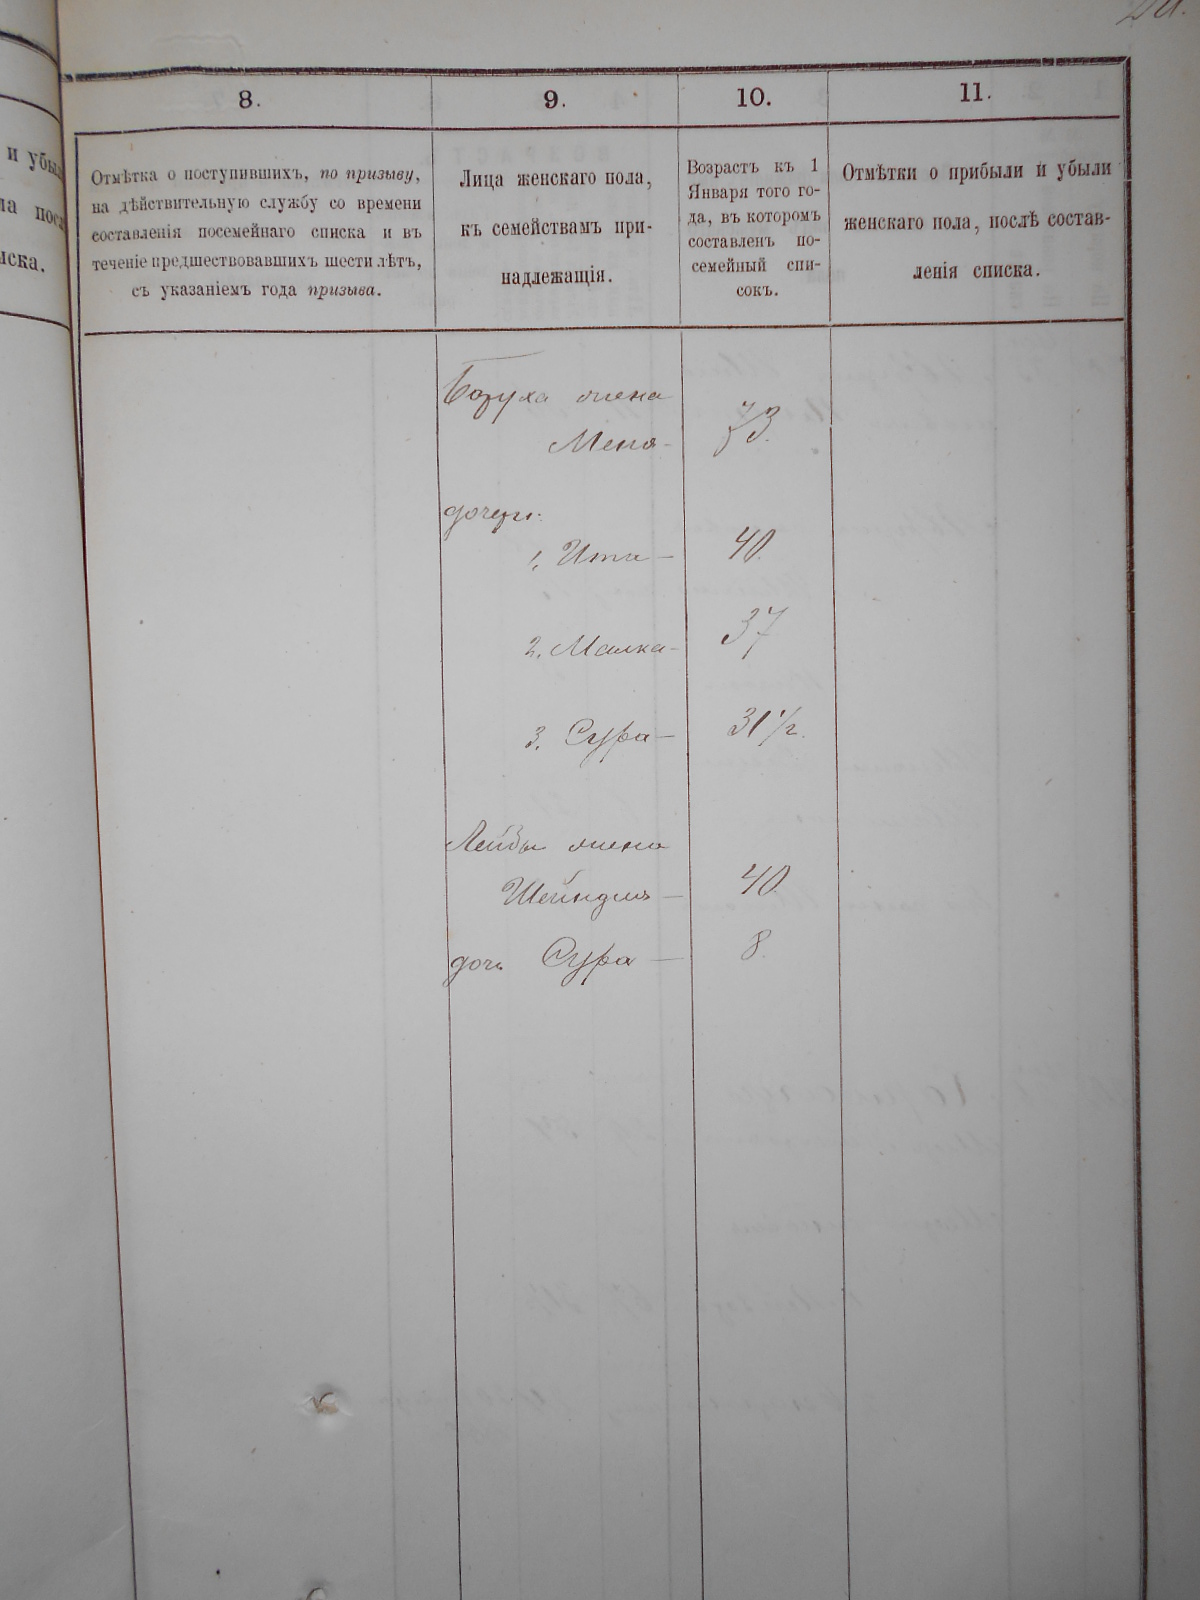 и убыли
ла посл
иска.
8.
9.
10.
11.
Отмѣтка о поступившихъ, по призыву,
на дѣйствительную службу со времени
составленія посемейнаго списка и въ
теченіе предшествовавшихъ шести лѣтъ,
съ указаніемъ года призыва.
Лица женскаго пола,
къ семействамъ при-
надлежащія.
Возрастъ къ 1
Января того го-
да, въ которомъ
составленъ по-
семейный спи-
сокъ.
Отмѣтки о прибыли и убыли
женскаго пола, послѣ состав-
ленія списка.
Боруха жена
Меня- 73.
дочери:
1, Ита- 40.
2, Малка- 37
3, Сура- 31 1/2.
Лейбы жена
Шейндля- 40
доч. Сура- 8.